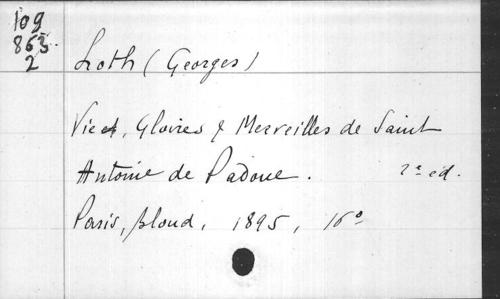 109
863.
2
Loth (Georges)
Vie, Gloires & Merveilles de Saint
Antoine de Padoue. 2e éd.
Paris, Bloud, 1895, 16°